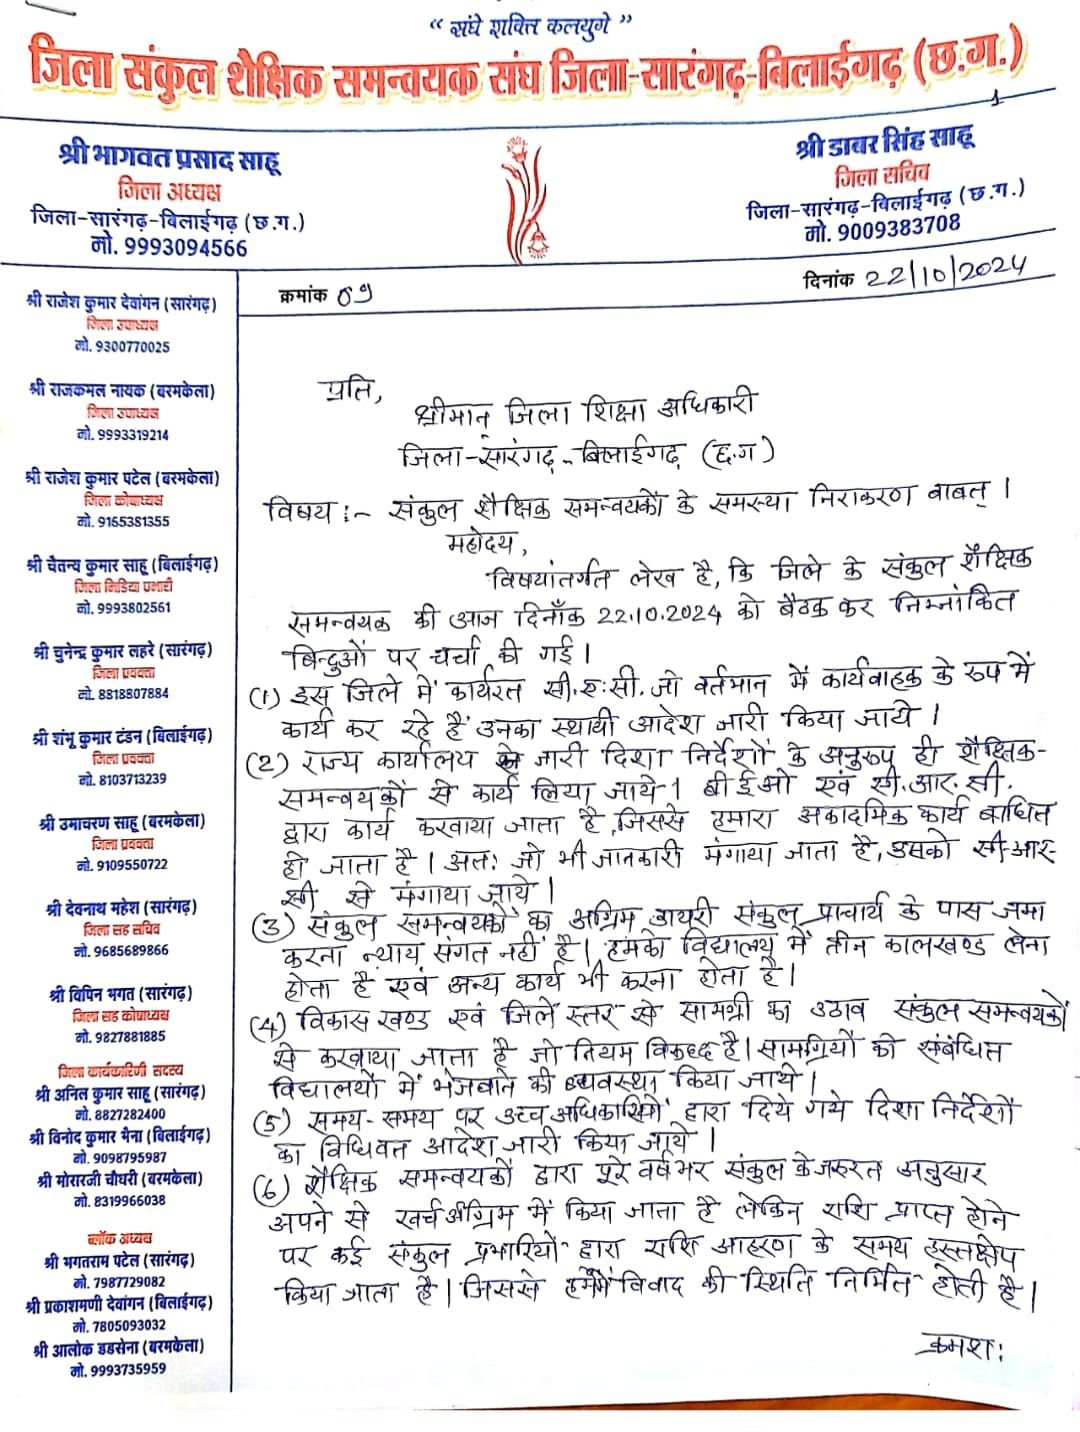 “ संघे शक्ति कलयुगे ”
जिला संकुल शैक्षिक समन्वयक संघ जिला-सारंगढ़-बिलाईगढ़ (छ.ग.)
1
श्री भागवत प्रसाद साहू
जिला अध्यक्ष
जिला-सारंगढ़-बिलाईगढ़ (छ.ग.)
मो. 9993094566
श्री डाबर सिंह साहू
जिला सचिव
जिला-सारंगढ़-बिलाईगढ़ (छ.ग.)
मो. 9009383708
क्रमांक 09
दिनांक 22/10/2024
श्री राजेश कुमार देवांगन (सारंगढ़)
जिला उपाध्यक्ष
मो. 9300770025
श्री राजकमल नायक (बरमकेला)
जिला उपाध्यक्ष
मो. 9993319214
श्री राजेश कुमार पटेल (बरमकेला)
जिला कोषाध्यक्ष
मो. 9165381355
श्री चैतन्य कुमार साहू (बिलाईगढ़)
जिला मिडिया प्रभारी
मो. 9993802561
श्री चुनेन्द्र कुमार लहरे (सारंगढ़)
जिला प्रवक्ता
मो. 8818807884
श्री शंभू कुमार टंडन (बिलाईगढ़)
जिला प्रवक्ता
मो. 8103713239
श्री उमाचरण साहू (बरमकेला)
जिला प्रवक्ता
मो. 9109550722
श्री देवनाथ महेश (सारंगढ़)
जिला सह सचिव
मो. 9685689866
श्री विपिन भगत (सारंगढ़)
जिला सह कोषाध्यक्ष
मो. 9827881885
जिला कार्यकारिणी सदस्य
श्री अनिल कुमार साहू (सारंगढ़)
मो. 8827282400
श्री विनोद कुमार मैना (बिलाईगढ़)
मो. 9098795987
श्री मोरारजी चौधरी (बरमकेला)
मो. 8319966038
ब्लॉक अध्यक्ष
श्री भगतराम पटेल (सारंगढ़)
मो. 7987729082
श्री प्रकाशमणी देवांगन (बिलाईगढ़)
मो. 7805093032
श्री आलोक डडसेना (बरमकेला)
मो. 9993735959
प्रति,
श्रीमान् जिला शिक्षा अधिकारी
जिला-सारंगढ़-बिलाईगढ़ (छ.ग)
विषय :- संकुल शैक्षिक समन्वयकों के समस्या निराकरण बाबत् ।
महोदय,
विषयांतर्गत लेख है, कि जिले के संकुल शैक्षिक
समन्वयक की आज दिनाँक 22.10.2024 को बैठक कर निम्नांकित
बिन्दुओं पर चर्चा की गई ।
(1) इस जिले में कार्यरत सी.ए.सी. जो वर्तमान में कार्यवाहक के रुप में
कार्य कर रहे हैं उनका स्थायी आदेश जारी किया जाये ।
(2) राज्य कार्यालय से जारी दिशा निर्देशों के अनुरूप ही शैक्षिक-
समन्वयकों से कार्य लिया जाये । बीईओ एवं सी.आर.सी.
द्वारा कार्य करवाया जाता है, जिससे हमारा अकादमिक कार्य बाधित
हो जाता है । अतः जो भी जानकारी मंगाया जाता है, उसको सी-आर-
सी से मंगाया जाये ।
(3) संकुल समन्वयकों का अग्रिम डायरी संकुल प्राचार्य के पास जमा
करना न्याय संगत नहीं है । हमको विद्यालय में तीन कालखण्ड लेना
होता है एवं अन्य कार्य भी करना होता है ।
(4) विकास खण्ड एवं जिले स्तर से सामग्री का उठाव संकुल समन्वयकों
से करवाया जाता है जो नियम विरुध्द है । सामग्रियों को संबंधित
विद्यालयों में भेजवाने की व्यवस्था किया जाये ।
(5) समय-समय पर उच्च अधिकारियों द्वारा दिये गये दिशा निर्देशों
का विधिवत आदेश जारी किया जाये ।
(6) शैक्षिक समन्वयकों द्वारा पूरे वर्षभर संकुल के जरुरत अनुसार
अपने से खर्च अग्रिम में किया जाता है लेकिन राशि प्राप्त होने
पर कई संकुल प्रभारियों द्वारा राशि आहरण के समय हस्तक्षेप
किया जाता है । जिससे हममें विवाद की स्थिति निर्मित होती है ।
क्रमशः